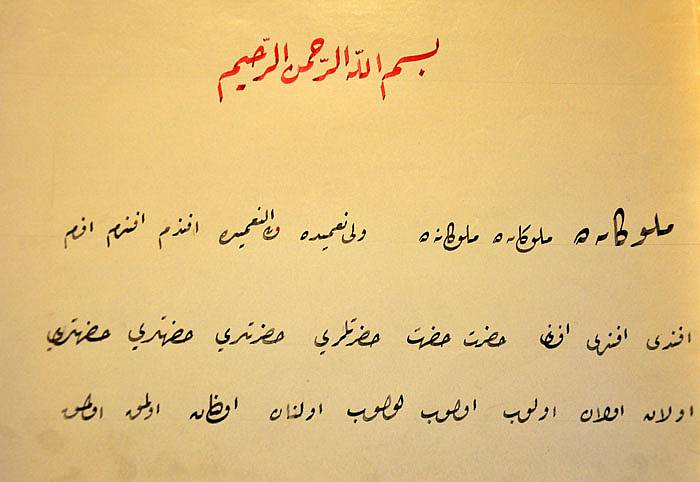 بسم الله الرّحمن الرّحيم
ملوكانه ملوكانه ملوكانه ولى نعميده ولى النعميده افندم افندم افندم
افندى افندى افندى حضرت حضرت حضرتلرى حضرتلرى حضرتلرى حضرتلرى
اولان اولان اولوب اولوب اولوب اولنان اولنان اولمق اولمق